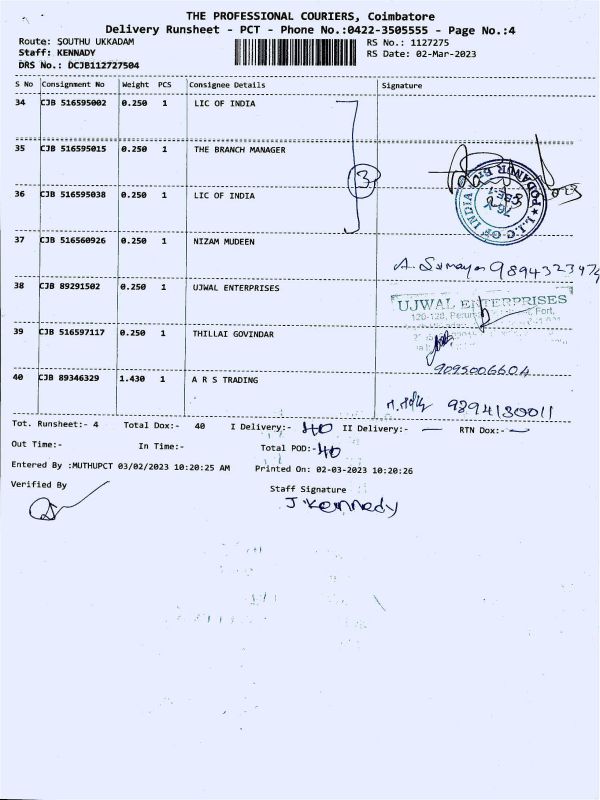 THE PROFESSIONAL COURIERS, Coimbatore
Delivery Runsheet - PCT - Phone No.:0422-3505555 - Page No.:4
Route: SOUTHU UKKADAM
RS No.: 1127275
Staff: KENNADY
RS Date: 02-Mar-2023
DRS No.: DCJB112727504
S No Consignment No Weight PCS Consignee Details Signature
34 CJB 516595002 0.250 1 LIC OF INDIA
35 CJB 516595015 0.250 1 THE BRANCH MANAGER
3
36 CJB 516595038 0.250 1 LIC OF INDIA
L.I.C OF INDIA ★ PODANUR
37 CJB 516560926 0.250 1 NIZAM MUDEEN
9894323474
38 CJB 89291502 0.250 1 UJWAL ENTERPRISES
UJWAL ENTERPRISES
Fort,
39 CJB 516597117 0.250 1 THILLAI GOVINDAR
9095006604
40 CJB 89346329 1.430 1 A R S TRADING
9894130011
Tot. Runsheet:- 4 Total Dox:- 40 I Delivery:- 40 II Delivery:- — RTN Dox:- —
Out Time:- In Time:- Total POD:- 40
Entered By :MUTHUPCT 03/02/2023 10:20:25 AM Printed On: 02-03-2023 10:20:26
Verified By
Staff Signature
J. Kennady